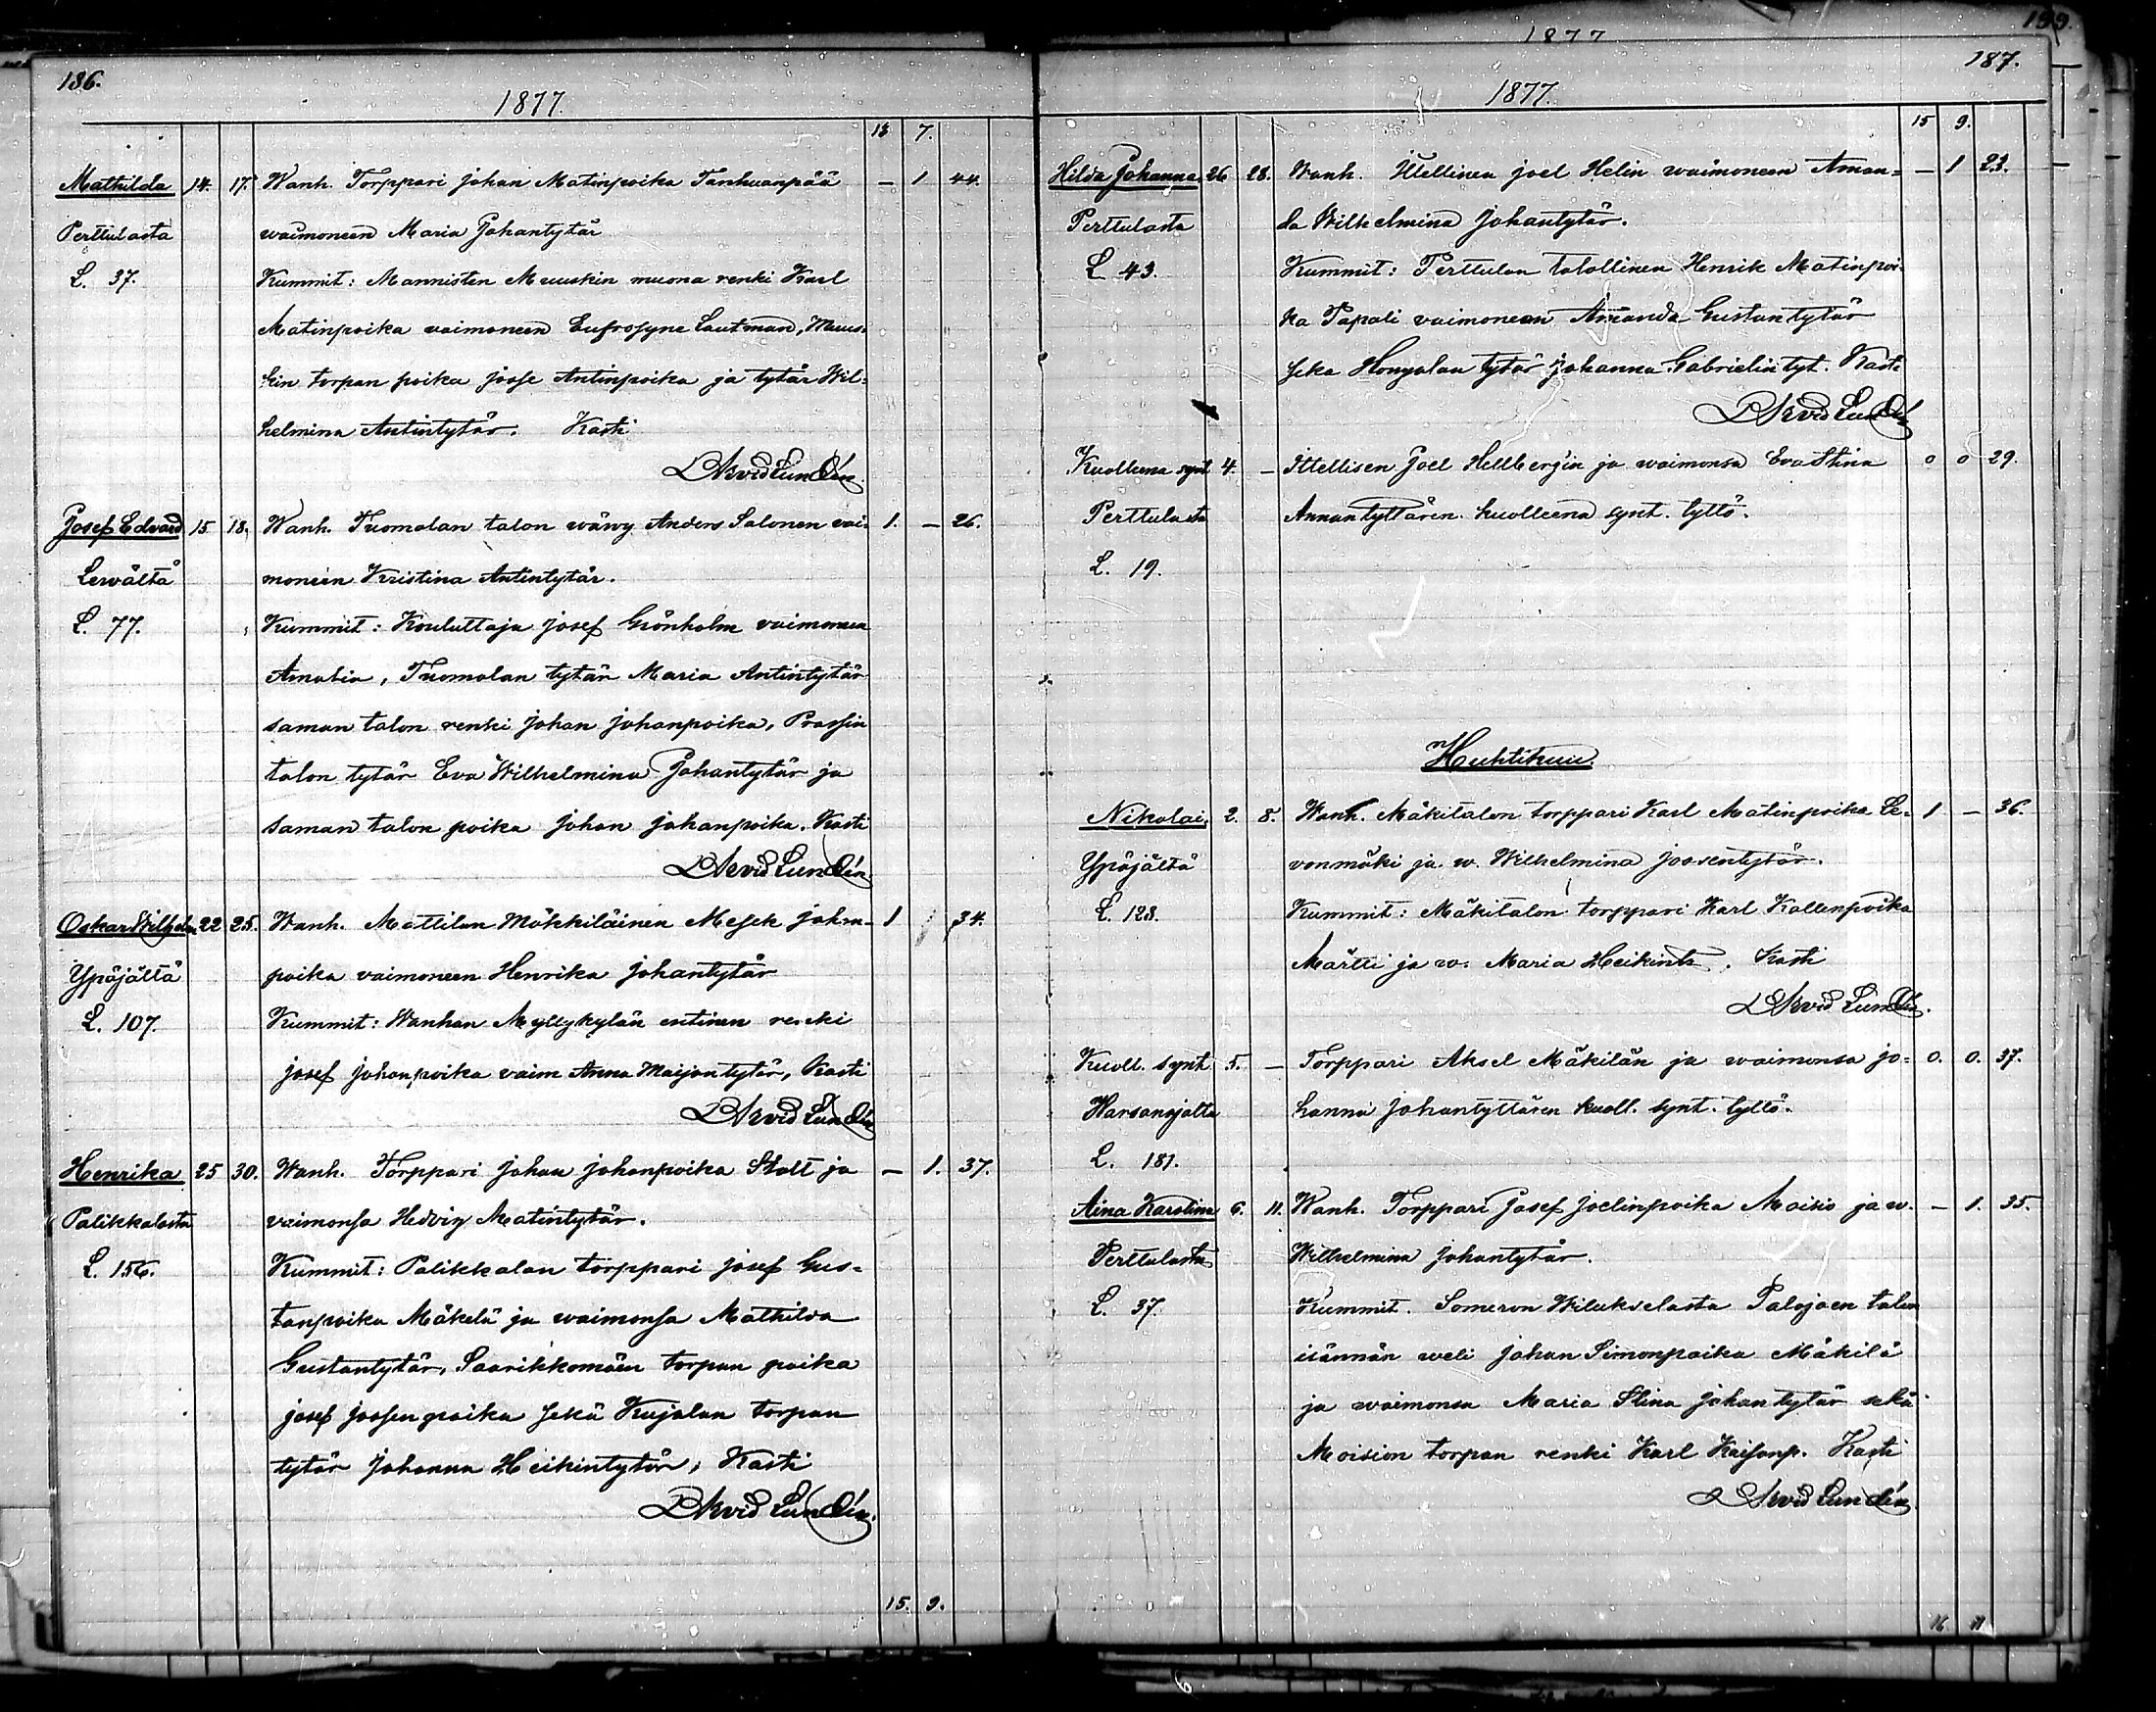 186.
1877.
13 7.
Mathilda 14. 17. Wanh. Torppari Johan Matinpoika Tanhuanpää — 1 44.
Perttulasta waimoneen Maria Johantytär
L. 37. Kummit: Mannisten Muuskin muona renki Karl
Matinpoika vaimoneen Eufrosyne Lautman, Muus-
kin torpan poika Joose Antinpoika ja tytär Wil-
helmina Antintytär. Kasti
Arvid Lundén.
Josef Edvard 15 18. Wanh. Tuomolan talon wäwy Anders Salonen vai- 1. — 26.
Lewältä moneen Kristina Antintytär.
L. 77. Kummit: Kouluttaja Josef Grönholm vaimoneen
Amalia, Tuomolan tytär Maria Antintytär
saman talon renki Johan Johanpoika, Prassin
talon tytär Eva Wilhelmina Johantytär ja
saman talon poika Johan Johanpoika. Kasti
Arvid Lundén.
Oskar Wilhelm 22 25. Wanh. Mattilan Mökkiläinen Mesek Johan- 1 34.
Ypäjältä poika vaimoneen Henrika Johantytär
L. 107. Kummit: Wanhan Myllykylän entinen renki
Josef Johanpoika vaim Anna Maijantytär, Kasti
Arvid Lundén
Henrika 25 30. Wanh. Torppari Johan Johanpoika Stolt ja — 1. 37.
Palikkalasta vaimonsa Hedvig Matintytär.
L. 156. Kummit: Palikkalan torppari Josef Gus-
tanpoika Mäkelä ja waimonsa Mathilda
Gustantytär, Saarikkomäen torpan poika
Josef Joosenpoika sekä Kujalan torpan
tytär Johanna Heikintytär, Kasti
Arvid Lundén.
15. 9.
1877
199.
187.
1877.
15 9.
Hilda Johanna 26 28. Wanh. Itellinen Joel Helin waimoneen Aman- — 1 23.
Perttulasta da Wilhelmina Johantytär.
L 43. Kummit: Perttulan talollinen Henrik Matinpoi-
ka Tapali vaimoneen Amanda Gustantytär
seka Honyalan tytär Johanna Gabrielin tyt. Kasti
Arvid Lundén
Kuolleena synt 4. — Ittellisen Joel Hellbergin ja waimonsa Eva Stina 0 0 29.
Perttulasta Annantyttären kuolleena synt. tyttö.
L. 19.
Huhtikuu.
Nikolai. 2. 8. Wanh. Mäkitalon torppari Karl Matinpoika Le- 1 — 36.
Ypäjältä vonmäki ja w. Wilhelmina Joosentytär.
L. 123. Kummit: Mäkitalon torppari Karl Kallenpoika
Märtti ja w. Maria Heikint. Kasti
Arvid Lundén.
Kuoll. synt 5. — Torppari Aksel Mäkilän ja waimonsa Jo- 0. 0. 37.
Warsanojalta hanna Johantyttären kuoll. synt. tyttö.
L. 181.
Aina Karolina 6. 11. Wanh. Torppari Josef Joelinpoika Moisio ja w. — 1. 35.
Perttulasta Wilhelmina Johantytär.
L. 37. Kummit. Someron Wilukselasta Palojoen talon
isännän weli Johan Simonpoika Mäkilä
ja waimonsa Maria Stina Johantytär sekä
Moision torpan renki Karl Kaisanp. Kasti
Arvid Lundén.
16. 11